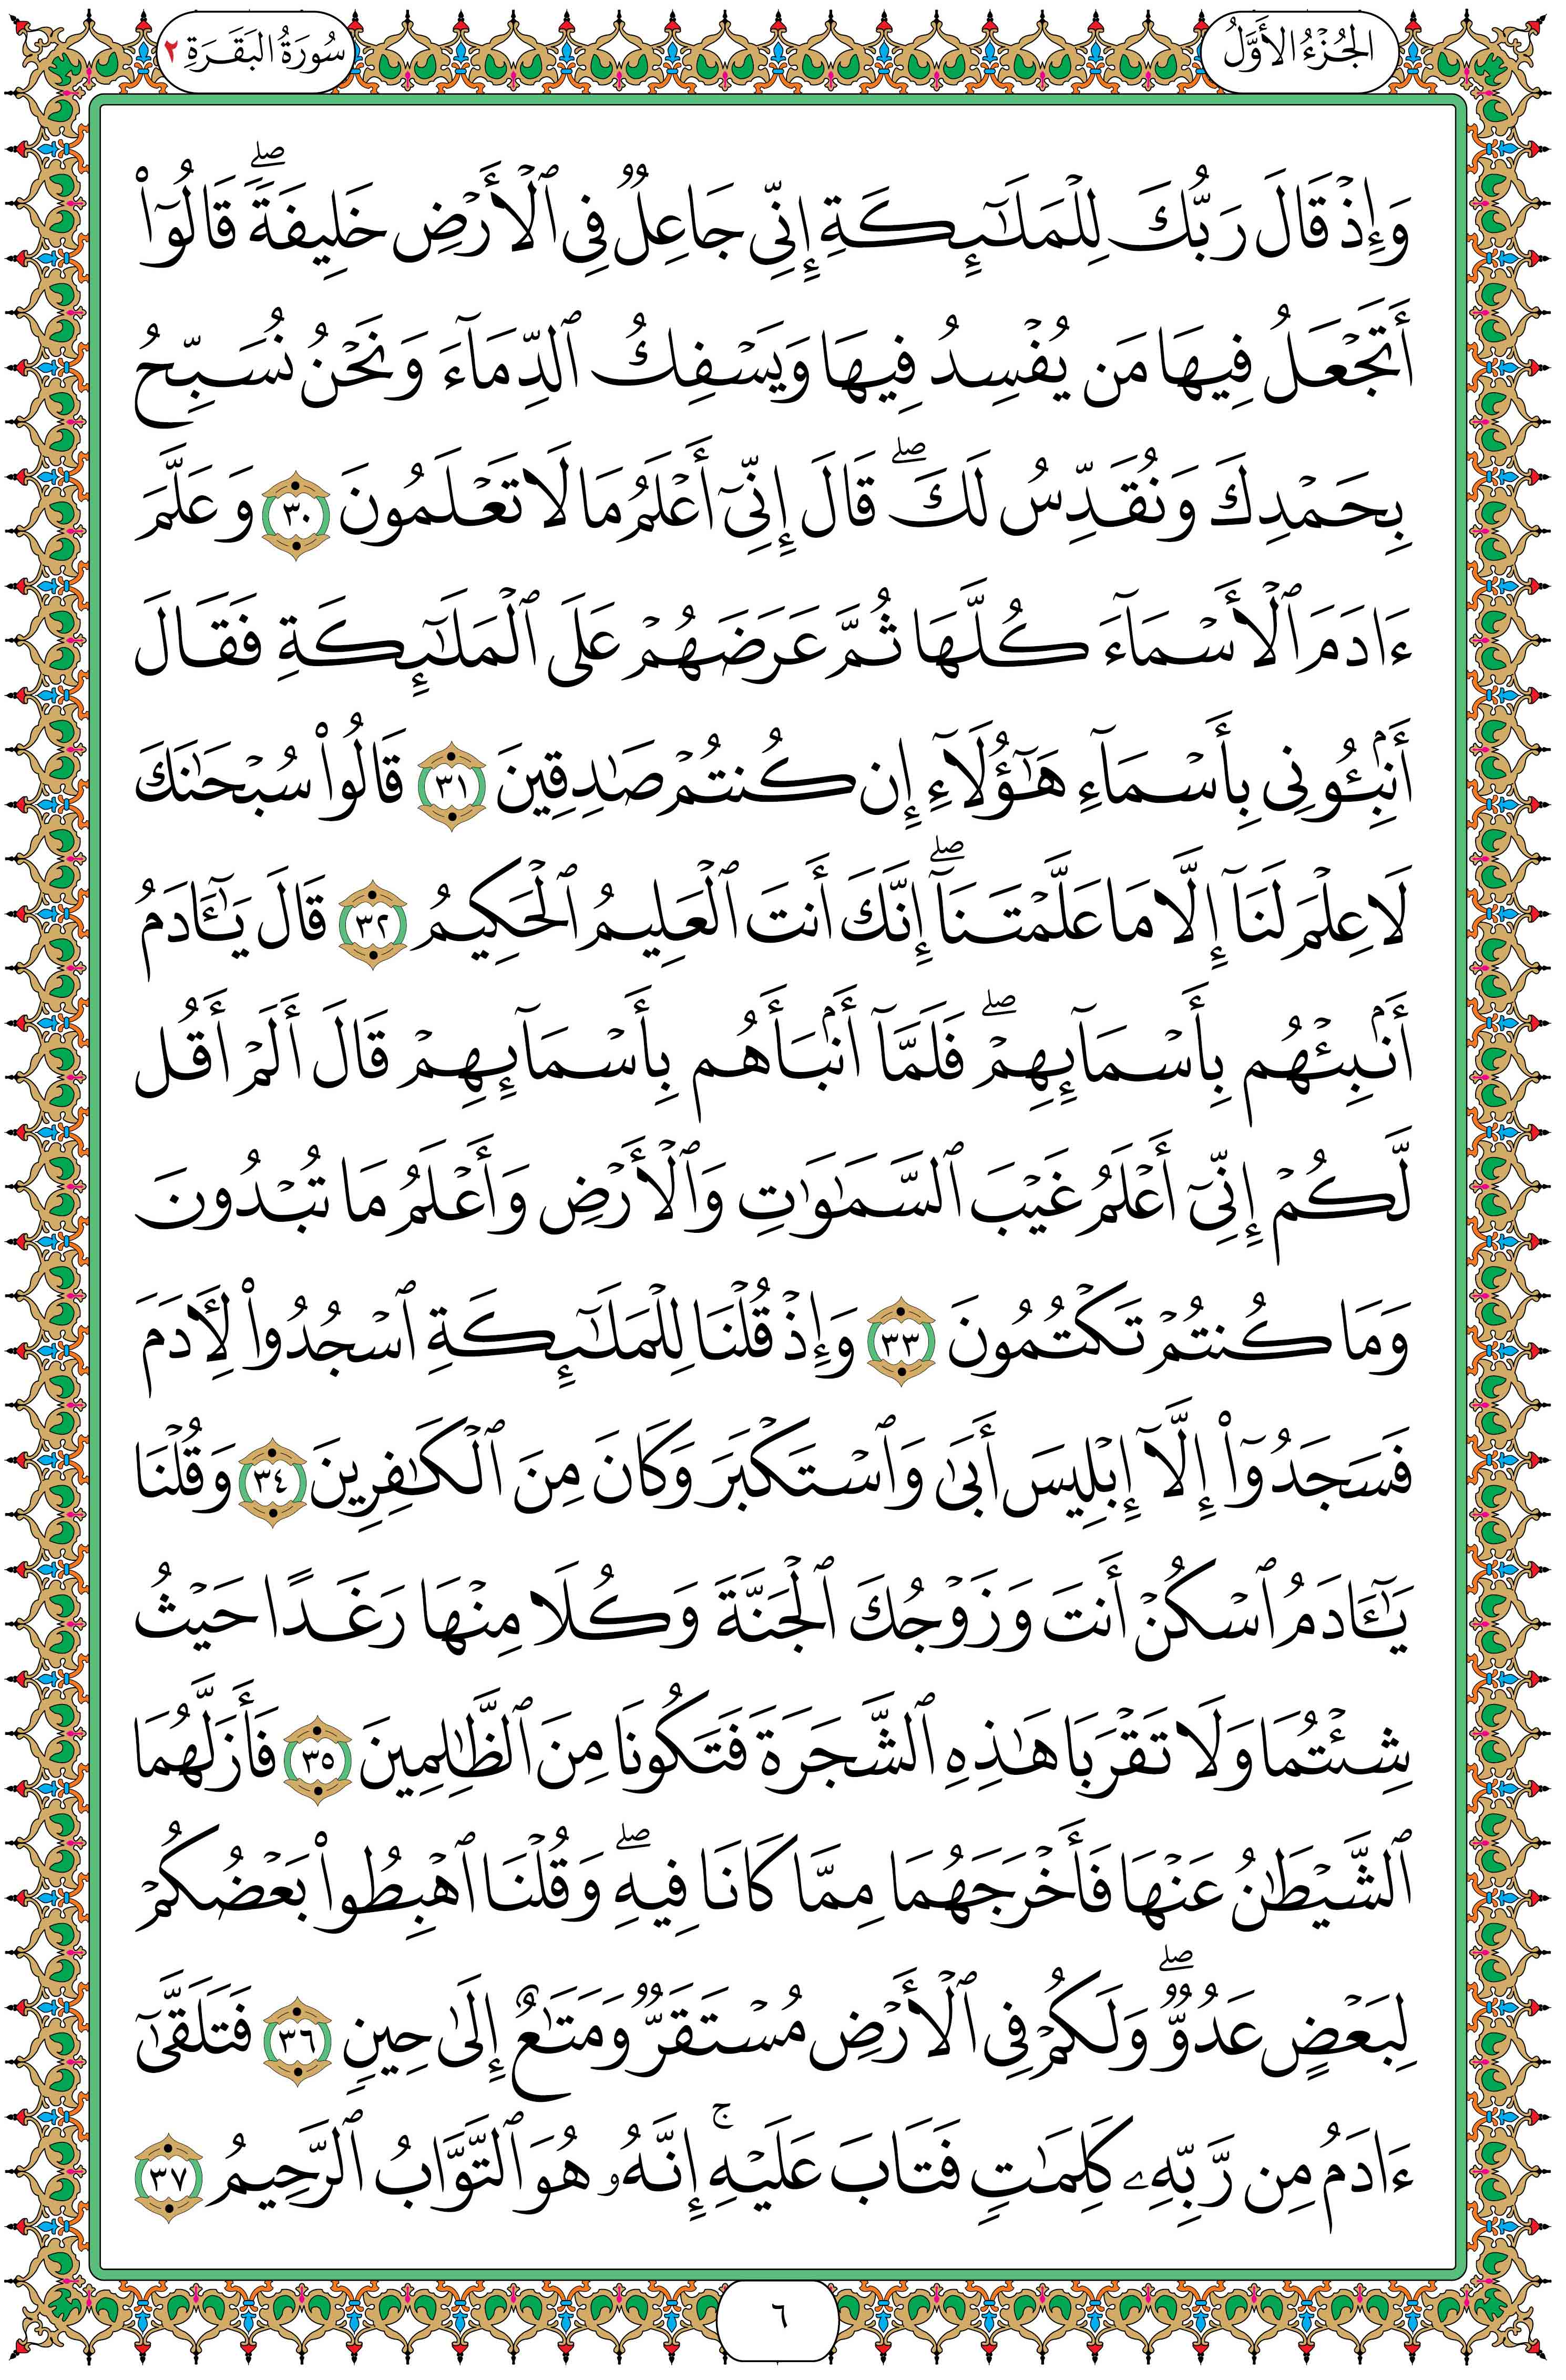 الجُزْءُ الأَوَّلُ
سُورَةُ البَقَرَةِ ٢
وَإِذۡ قَالَ رَبُّكَ لِلۡمَلَٰٓئِكَةِ إِنِّي جَاعِلٞ فِي ٱلۡأَرۡضِ خَلِيفَةٗۖ قَالُوٓاْ
أَتَجۡعَلُ فِيهَا مَن يُفۡسِدُ فِيهَا وَيَسۡفِكُ ٱلدِّمَآءَ وَنَحۡنُ نُسَبِّحُ
بِحَمۡدِكَ وَنُقَدِّسُ لَكَۖ قَالَ إِنِّيٓ أَعۡلَمُ مَا لَا تَعۡلَمُونَ ٣٠ وَعَلَّمَ
ءَادَمَ ٱلۡأَسۡمَآءَ كُلَّهَا ثُمَّ عَرَضَهُمۡ عَلَى ٱلۡمَلَٰٓئِكَةِ فَقَالَ
أَنۢبِـُٔونِي بِأَسۡمَآءِ هَٰٓؤُلَآءِ إِن كُنتُمۡ صَٰدِقِينَ ٣١ قَالُواْ سُبۡحَٰنَكَ
لَا عِلۡمَ لَنَآ إِلَّا مَا عَلَّمۡتَنَآۖ إِنَّكَ أَنتَ ٱلۡعَلِيمُ ٱلۡحَكِيمُ ٣٢ قَالَ يَٰٓـَٔادَمُ
أَنۢبِئۡهُم بِأَسۡمَآئِهِمۡۖ فَلَمَّآ أَنۢبَأَهُم بِأَسۡمَآئِهِمۡ قَالَ أَلَمۡ أَقُل
لَّكُمۡ إِنِّيٓ أَعۡلَمُ غَيۡبَ ٱلسَّمَٰوَٰتِ وَٱلۡأَرۡضِ وَأَعۡلَمُ مَا تُبۡدُونَ
وَمَا كُنتُمۡ تَكۡتُمُونَ ٣٣ وَإِذۡ قُلۡنَا لِلۡمَلَٰٓئِكَةِ ٱسۡجُدُواْ لِأٓدَمَ
فَسَجَدُوٓاْ إِلَّآ إِبۡلِيسَ أَبَىٰ وَٱسۡتَكۡبَرَ وَكَانَ مِنَ ٱلۡكَٰفِرِينَ ٣٤ وَقُلۡنَا
يَٰٓـَٔادَمُ ٱسۡكُنۡ أَنتَ وَزَوۡجُكَ ٱلۡجَنَّةَ وَكُلَا مِنۡهَا رَغَدًا حَيۡثُ
شِئۡتُمَا وَلَا تَقۡرَبَا هَٰذِهِ ٱلشَّجَرَةَ فَتَكُونَا مِنَ ٱلظَّٰلِمِينَ ٣٥ فَأَزَلَّهُمَا
ٱلشَّيۡطَٰنُ عَنۡهَا فَأَخۡرَجَهُمَا مِمَّا كَانَا فِيهِۖ وَقُلۡنَا ٱهۡبِطُواْ بَعۡضُكُمۡ
لِبَعۡضٍ عَدُوّٞۖ وَلَكُمۡ فِي ٱلۡأَرۡضِ مُسۡتَقَرّٞ وَمَتَٰعٌ إِلَىٰ حِينٖ ٣٦ فَتَلَقَّىٰٓ
ءَادَمُ مِن رَّبِّهِۦ كَلِمَٰتٖ فَتَابَ عَلَيۡهِۚ إِنَّهُۥ هُوَ ٱلتَّوَّابُ ٱلرَّحِيمُ ٣٧
٦